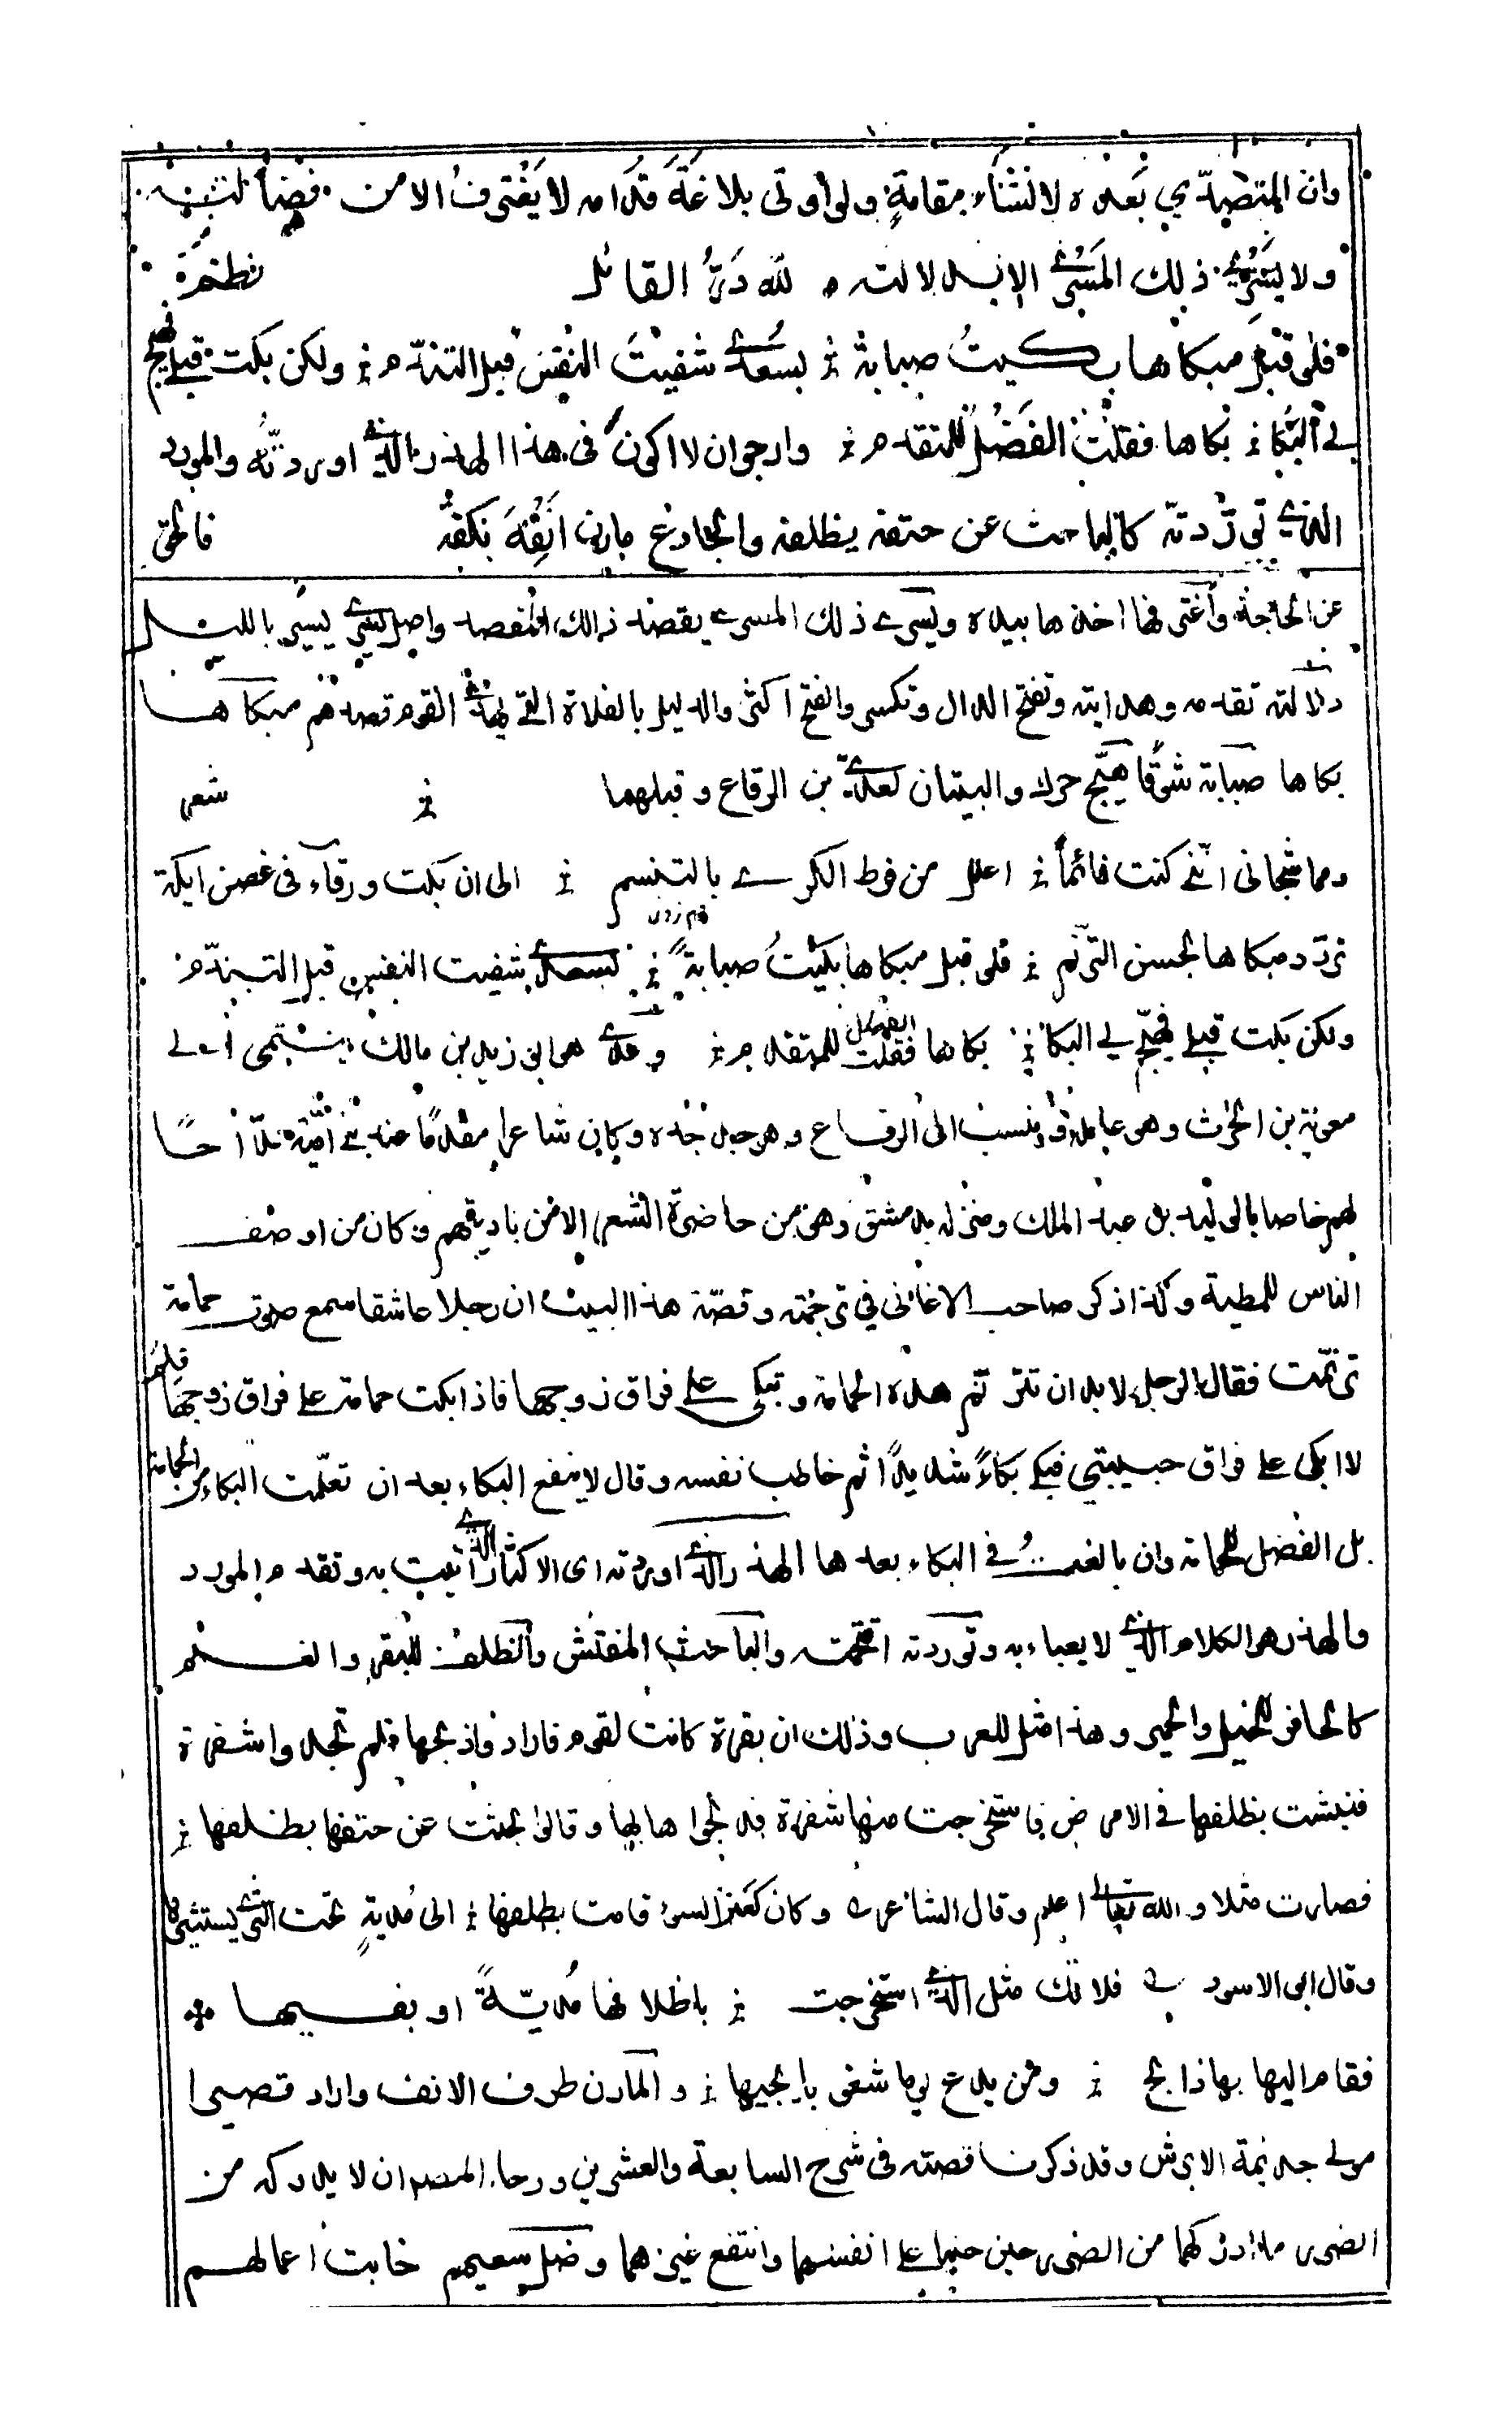 وان المتصدي بعده لانشاء مقامةٍ ولو أوتي بلاغة قدامه لا يغترف الا من فضالته
ولا يسري ذلك المسرى الا بدلالته لله درّ القائل نظم
فلو قبل مبكاها بكيتُ صبابة بسعدى شفيت النفس قبل التندم ولكن بكت قبلي فهيج
لي البكا بكاها فقلت الفضل للمتقدم وارجو ان لا اكون في هذا الهذر الذي اوردته والمورد
الذي توردته كالباحث عن حتفه بظلفه والجادع مارن انفه بكفه فالحق
عن الحاجة واغتر فها اخذها بيده ويسري ذلك المسرى يقصد ذلك المقصد واصل يسري يسير بالليل
دلالته تقدمه وهدايته وتفتح الدال وتكسر والفتح اكثر والدليل بالفلاة الذي يهدي القوم قصدهم مبكاها
بكاها صبابة شوقا هيّج حرك والبيتان لعدي بن الرقاع وقبلهما شعر
ومما شجاني انني كنت نائماً اعلل من فرط الكرى بالتنسم الى ان بكت ورقاء في غصن ايكة
تردد مبكاها لحسن الترنم فلو قبل مبكاها بكيتُ صبابةً بسعدى شفيت النفس قبل التندم
ولكن بكت قبلي فهيّج لي البكا بكاها فقلت الفضل للمتقدم وعدي هو ابن زيد بن مالك ينتمي الى
معوية بن الحرث وهو عاملة ونسب الى الرقاع وهو جد جده وكان شاعرا مقدما عند بني امية مدّاحًا
لهم خاصا بالوليد بن عبد الملك ومنزله بدمشق وهو من حاضرة الشعراء لا من باديتهم وكان من اوصف
الناس للمطية وكذا ذكر صاحب الاغاني في ترجمته وقصّة هذا البيت ان رجلا عاشقا سمع صوت حمامة
ترنّمت فقال الرجل لا بد ان تترنم هذه الحمامة وتبكي على فراق زوجها فاذا بكت حمامة على فراق زوجها فلم
لا ابكي على فراق حبيبتي فبكى بكاءً شديدًا ثم خاطب نفسه وقال لا ينفع البكاء بعد ان تعلّمت البكاء من الحمامة
بل الفضل للحمامة وان بالغت في البكاء بعدها الهذر الذي اوردته اى الاكثار الذي اتيت به وتقدم المورد
والهذر هو الكلام الذي لا يعباء به وتوردته اقتحمته والباحث المفتش والظلف للبقر والغنم
كالحافر للخيل والحمير وهذا مثل للعرب وذلك ان بقرة كانت لقوم فارادوا ذبحها فلم تجدوا شفرة
فنبشت بظلفها في الارض فاستخرجت منها شفرة فذبحوها بها وقالوا بحثت عن حتفها بظلفها
فصارت مثلا والله تعالى اعلم وقال الشاعر وكان كعنز السوء قامت بظلفها الى مديةٍ تحت الثرى تستثيرها
وقال ابو الاسود فلا تك مثل الذي استخرجت باظلافها مديّةً او بفيها
فقام اليها بها ذابح ومن يدع يوما شعوبا يجيها والمارن طرف الانف واراد قصيرا
مولى جذيمة الابرش وقد ذكرنا قصته في شرح السابعة والعشرين ورجاء المصم ان لا يدركه من
الضرر ما ادركهما من الضرر حين جنيا على انفسهما وانتفع غيرهما وضل سعيهم خابت اعمالهم